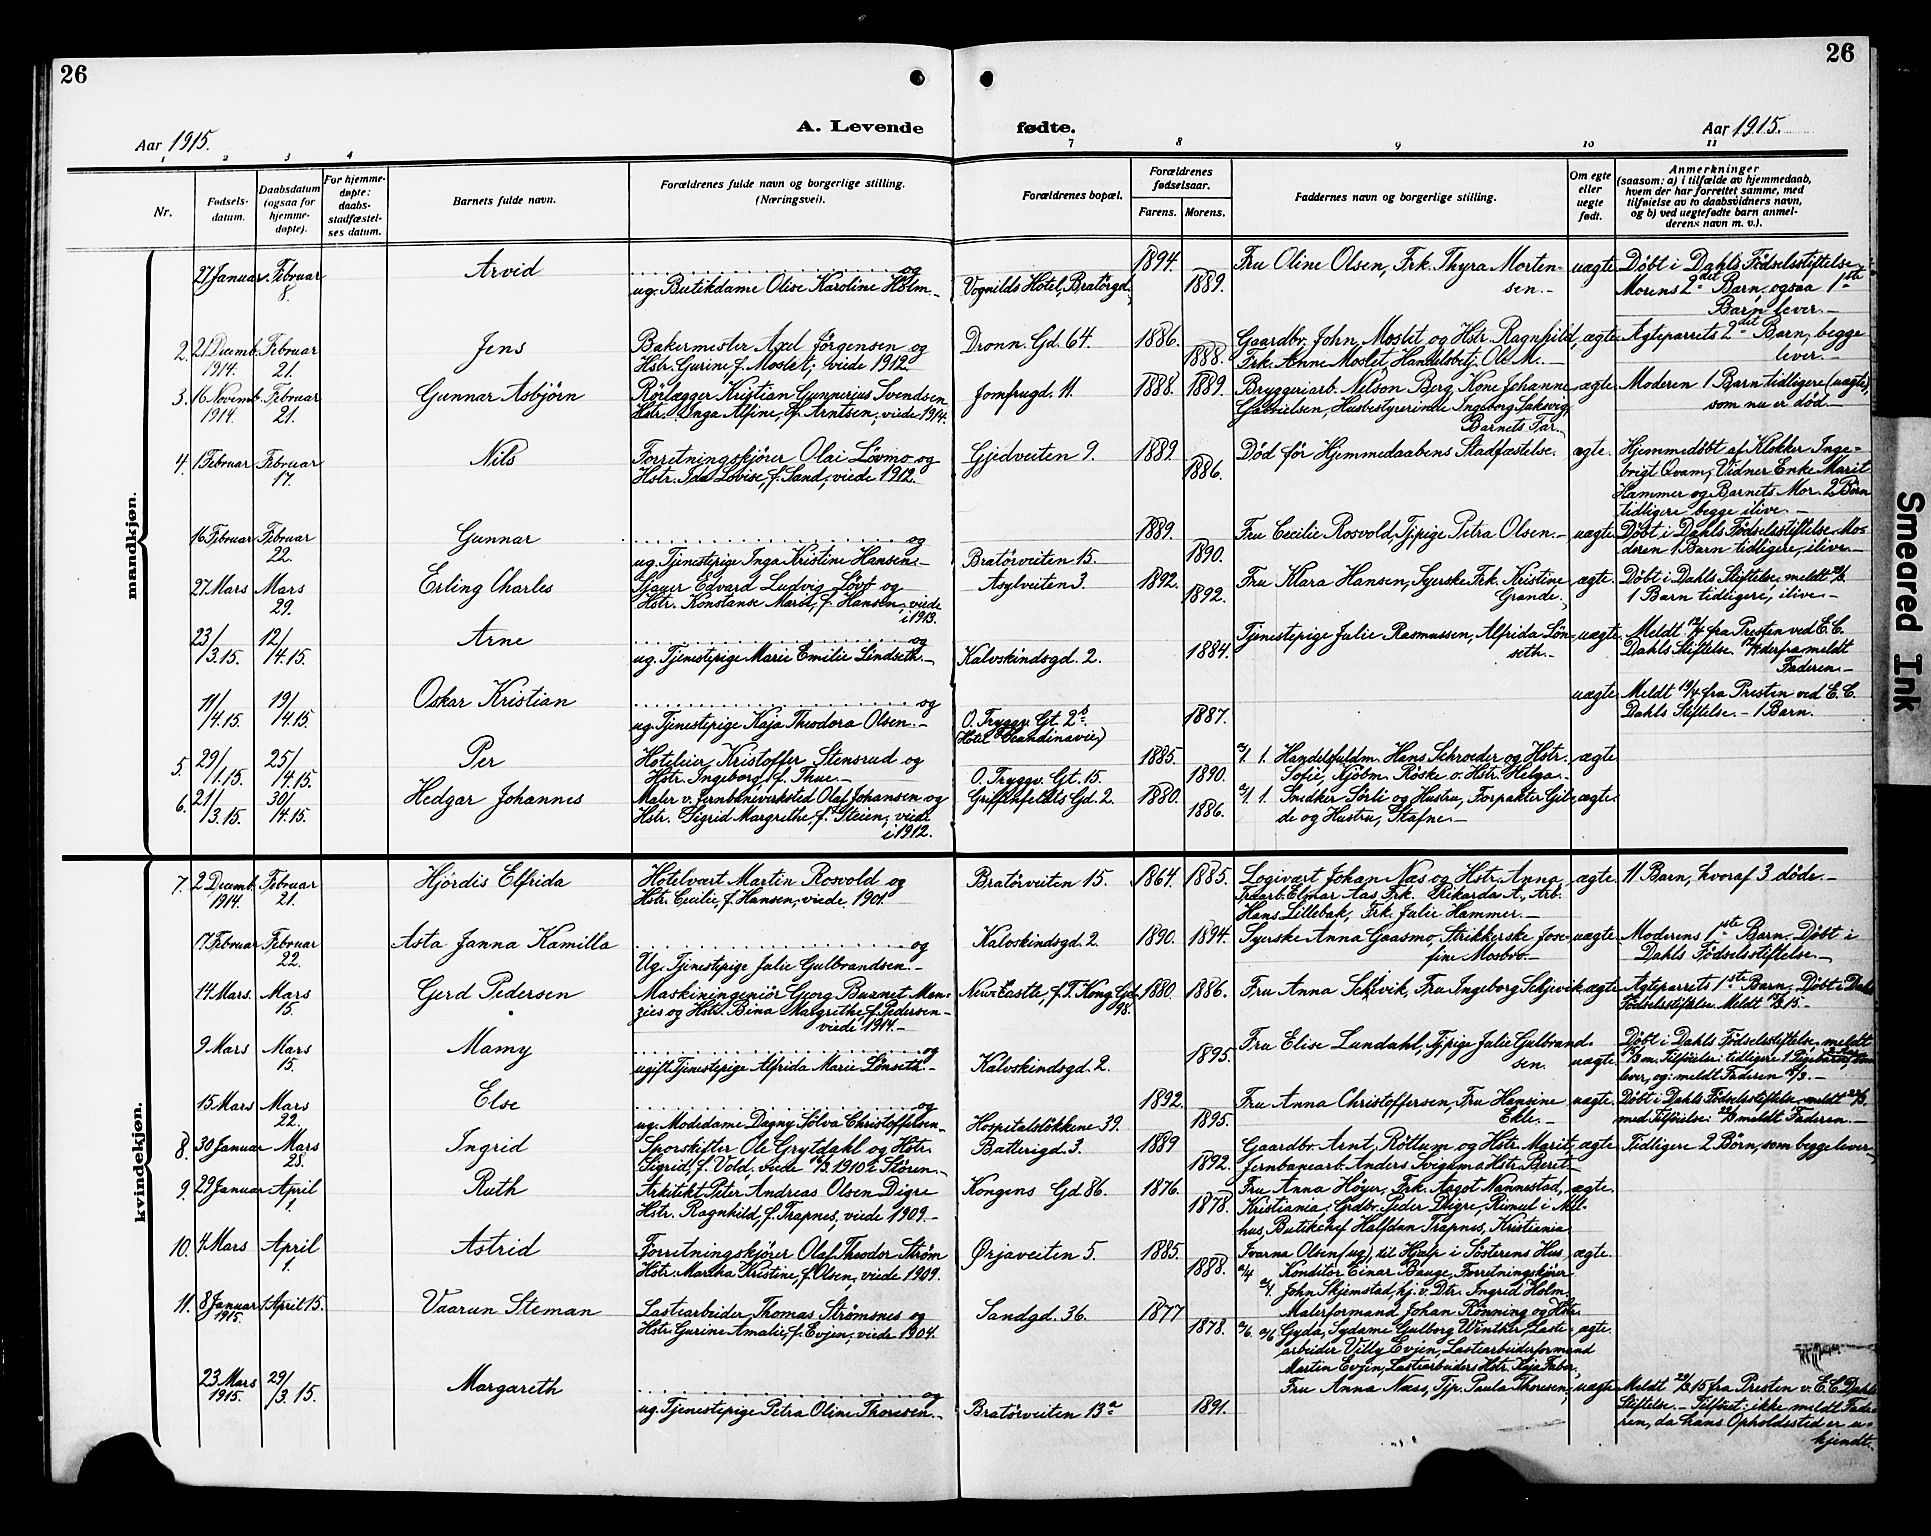 26
26
A. Levende fødte.
Aar 1915.
Aar 1915.
1 2 3 4 7 8 9 10 11
Nr.
Fødsels-
datum.
Daabsdatum
(ogsaa for
hjemme-
døpte).
For hjemme-
døpte:
daabs-
stadfæstel-
ses datum.
Barnets fulde navn.
Forældrenes fulde navn og borgerlige stilling.
(Næringsvei).
Forældrenes bopæl.
Forældrenes
fødselsaar.
Farens. Morens.
Faddernes navn og borgerlige stilling.
Om egte
eller
uegte
født.
Anmerkninger
(saasom: a) i tilfælde av hjemmedaab,
hvem der har forrettet samme, med
tilføielse av to daabsvidners navn,
og b) ved uegtefødte barn anmel-
derens navn m. v.).
mandkjøn.
27 Januar. Februar Arvid og 1894. Fru Oline Olsen, Frk. Thyra Morten- uægte. Döbt i Dahls Födselsstiftelse.
8. ug. Butikdame Olise Karoline Holm.- Vognilds Hotel, Bratörgd. 1889. sen.- Morens 2det Barn, ogsaa 1ste
Barn lever.-
2. 21 Decemb. Februar Jens Bakermester Axel Jörgensen og Dronn. Gd. 64. 1886. Gaardbr. John Moslet og Hstr. Ragnhild, ægte. Ægteparrets 2det Barn, begge
1914. 21. Hstr. Gurine f. Moslet; viede 1912. 1888. Frk. Anne Moslet, Handelsbetj. Ole M.- lever.-
3. 16 Novemb. Februar Gunnar Asbjörn Rörlægger Kristian Gunnerius Svendsen Jomfrugd. 11. 1888. 1889. Bryggeriarb. Nelson Berg, Kone Johanne ægte. Moderen 1 Barn tidligere (uægte),
1914. 21. Hstr. Inga Alfine, f. Arntsen, viede 1914. Gabrielsen, Husbestyrerinde Ingeborg Saksvig, som nu er död.-
Barnets Far.
4. 1 Februar Februar Nils Forretningskjörer Olai Lövmo og Gjedveiten 9. 1889 Död för Hjemmedaabens Stadfæstelse. ægte. Hjemmedöbt af Klokker Inge-
17. Hstr. Ida Lovise, f. Sand, viede 1912. 1886. brigt Qvam, Vidner Enke Marit
Hammer og Barnets Mor. 2 Börn
tidligere begge ilive.-
16 Februar Februar Gunnar og 1889. Fru Cecilie Rosvold, Tjpige Petra Olsen.- uægte. Döbt i Dahls Födselsstiftelse. Mo-
22. ug. Tjenestepige Inga Kristine Hansen.- Bratörveiten 15. 1890. deren 1 Barn tidligere, ilive.-
27 Mars Mars Erling Charles Sjauer Edvard Ludvig Lövö og Asylveiten 3. 1892. Fru Klara Hansen, Syerske Frk. Kristine ægte. Döbt i Dahls Stiftelse, meldt
29. Hstr. Konstanse f. Hansen, viede 1892. Grande. 1 Barn tidligere, ilive.-
i 1913.
23/3.15. 12/4.15. Arne og Tjenestepige Julie Rasmussen, Alfrida Lön- uægte. Meldt 12/4 fra Presten ved E. C.
ug. Tjenestepige Marie Emilie Lindseth.- Kalvskindsgd. 2. 1884. seth.- Dahls Stiftelse. derfra meldt
Faderen.-
11/4.15. 19/4.15. Oskar Kristian og uægte. Meldt 19/4 fra Presten ved E. C.
ug. Tjenestepige Kaja Theodora Olsen.- O. Tryggv. Gt. 2b 1887. Dahls Stiftelse.- 1 Barn.
(Hotel Scandinavie)
5. 29/1.15. 25/4.15. Per Hoteleier Kristoffer Stensrud og 1885. 1. Handelsfuldm. Hans Schroeder og Hstr. ægte
Hstr. Ingeborg, f. Thue.- O. Tryggv. Gt. 15. 1890. Sofie, Kjöbm. Röske o. Hstr. Helga.-
6. 21/3.15. 30/4.15. Hedgar Johannes Maler v. Jernbaneverksted Olaf Johansen og Griffenfeldts Gd. 2. 1880. 1. Snedker Sörli og Hustru, Forpakter Gil- ægte.
Hstr. Sigrid Margrethe, f. Steien, viede 1886. de og Hustru, Stafne.-
i 1912.
kvindekjøn.
7. 2 Decemb. Februar Hjördis Elfrida Hotelvært Martin Rosvold og Bratörveiten 15. 1864. 1885. Logivært Johan Næs og Hstr. Anna, ægte. 11 Barn, hvoraf 3 döde.-
1914. 21. Hstr. Cecilie, f. Hansen, viede 1901. Træarb. Elmar Aas, Frk. Rikarda A., Arb.
Hans Lillebak, Frk. Julie Hammer.-
17 Februar Februar Asta Janna Kamilla og Kalvskindsgd. 2 1890. 1894. Syerske Anna Gaasmo, Strikkerske Jose- uægte. Moderens 1ste Barn. Döbt i
22. Ug. Tjenestepige Julie Gulbrandsen.- fine Mosbro.- Dahls Födselsstiftelse.-
14 Mars. Mars Gerd Pedersen Maskiningeniör Georg Burnet Men- New Castle, f. T. Kong. Gd. 1880. 1886. Fru Anna Schivik, Fru Ingeborg Schjevik. ægte. Ægteparrets 1ste Barn. Döbt i Dahls
15. zies og Hstr. Bina Margrithe, f. Pedersen- 98. Födselsstiftelse. Meldt 15.-
viede 1914.-
9 Mars Mars Mamy og Fru Elise Lundahl, Tjpige Julie Gulbrand- Döbt i Dahls Födselsstiftelse, meldt
15. ugift Tjenestepige Alfrida Marie Lönseth.- Kalvskindsgd. 2. 1895. sen. uægte. m. Tilföielse: tidligere 1 Pigebarn, som
lever, og: meldt Faderen
15 Mars Mars Else og 1892. Fru Anna Christoffersen, Fru Hansine uægte. Döbt i Dahls Födselsstiftelse, meldt 22/3.
22. ug. Modedame Dagny Sölva Christoffersen.- Hospitalslökkene 39. 1895. Ekle.- med Tilföielse: 22/3 meldt Faderen.-
8. 30 Januar Mars Ingrid Sporskifter Ole Grytdahl og Hstr. Batterigd. 3. 1889 Gaardbr. Arnt Röttum og Hstr. Marit, ægte. Tidligere 2 Börn, som begge lever.-
28. Sigrid, f. Vold, viede 1910 i Stören. 1892. Jernbanearb. Anders Svigum o. Hstr. Berit.-
9. 29 Januar April Ruth Arkitekt Peter Andreas Olsen Digre Kongens Gd 86. 1876. Fru Anna Höyer, Frk. Asgot Nannestad, ægte.
1. Hstr. Ragnhild, f. Trapnes, viede 1909.- 1878. Kristiania, Grdbr. Peder Digre, Rimul i Mel-
hus, Butikchef Halfdan Trapnes, Kristiania
10. 4 Mars April Astrid Forretningskjörer Olaf Theodor Ström Ørjaveiten 5. 1885. Ivarna Olsen (ug), til Hjælp i Sösterens Hus, ægte.
1. Hstr. Martha Kristine, f. Olsen, viede 1909. 1888. Konditor Einar Bauge, Forretningskjörer
John Skjemstad, hj. v. Dtr. Ingrid Holm.
11. 8 Januar 1 April 15. Vaarun Steman Lastearbeider Thomas Strömsnes og Sandgd. 36. 1877 Malerformand Johan Rönning og Hstr.
1915. Hstr. Gurine Amalie, f. Evjen, viede 1904. 1878. Gyda, Sydame Gulborg Winther, Laste- ægte.
arbeider Villy Evjen, Lastearbeiderformand
Martin Evjen, Lastearbeiders Hstr. Kaja Faber.
23 Mars 29/3.15. Margareth og Fru Anna Næss, Tjp. Paula Thoresen, uægte. Meldt 29/3.15 fra Presten v. E. C. Dahls
1915. ug. Tjenestepige Petra Oline Thoresen.- Bratörveiten 13a 1891. Stiftelse.- Tilföiet: ikke meldt Fade-
ren, da hans Opholdssted er u-
kjendt.
Smeared Ink